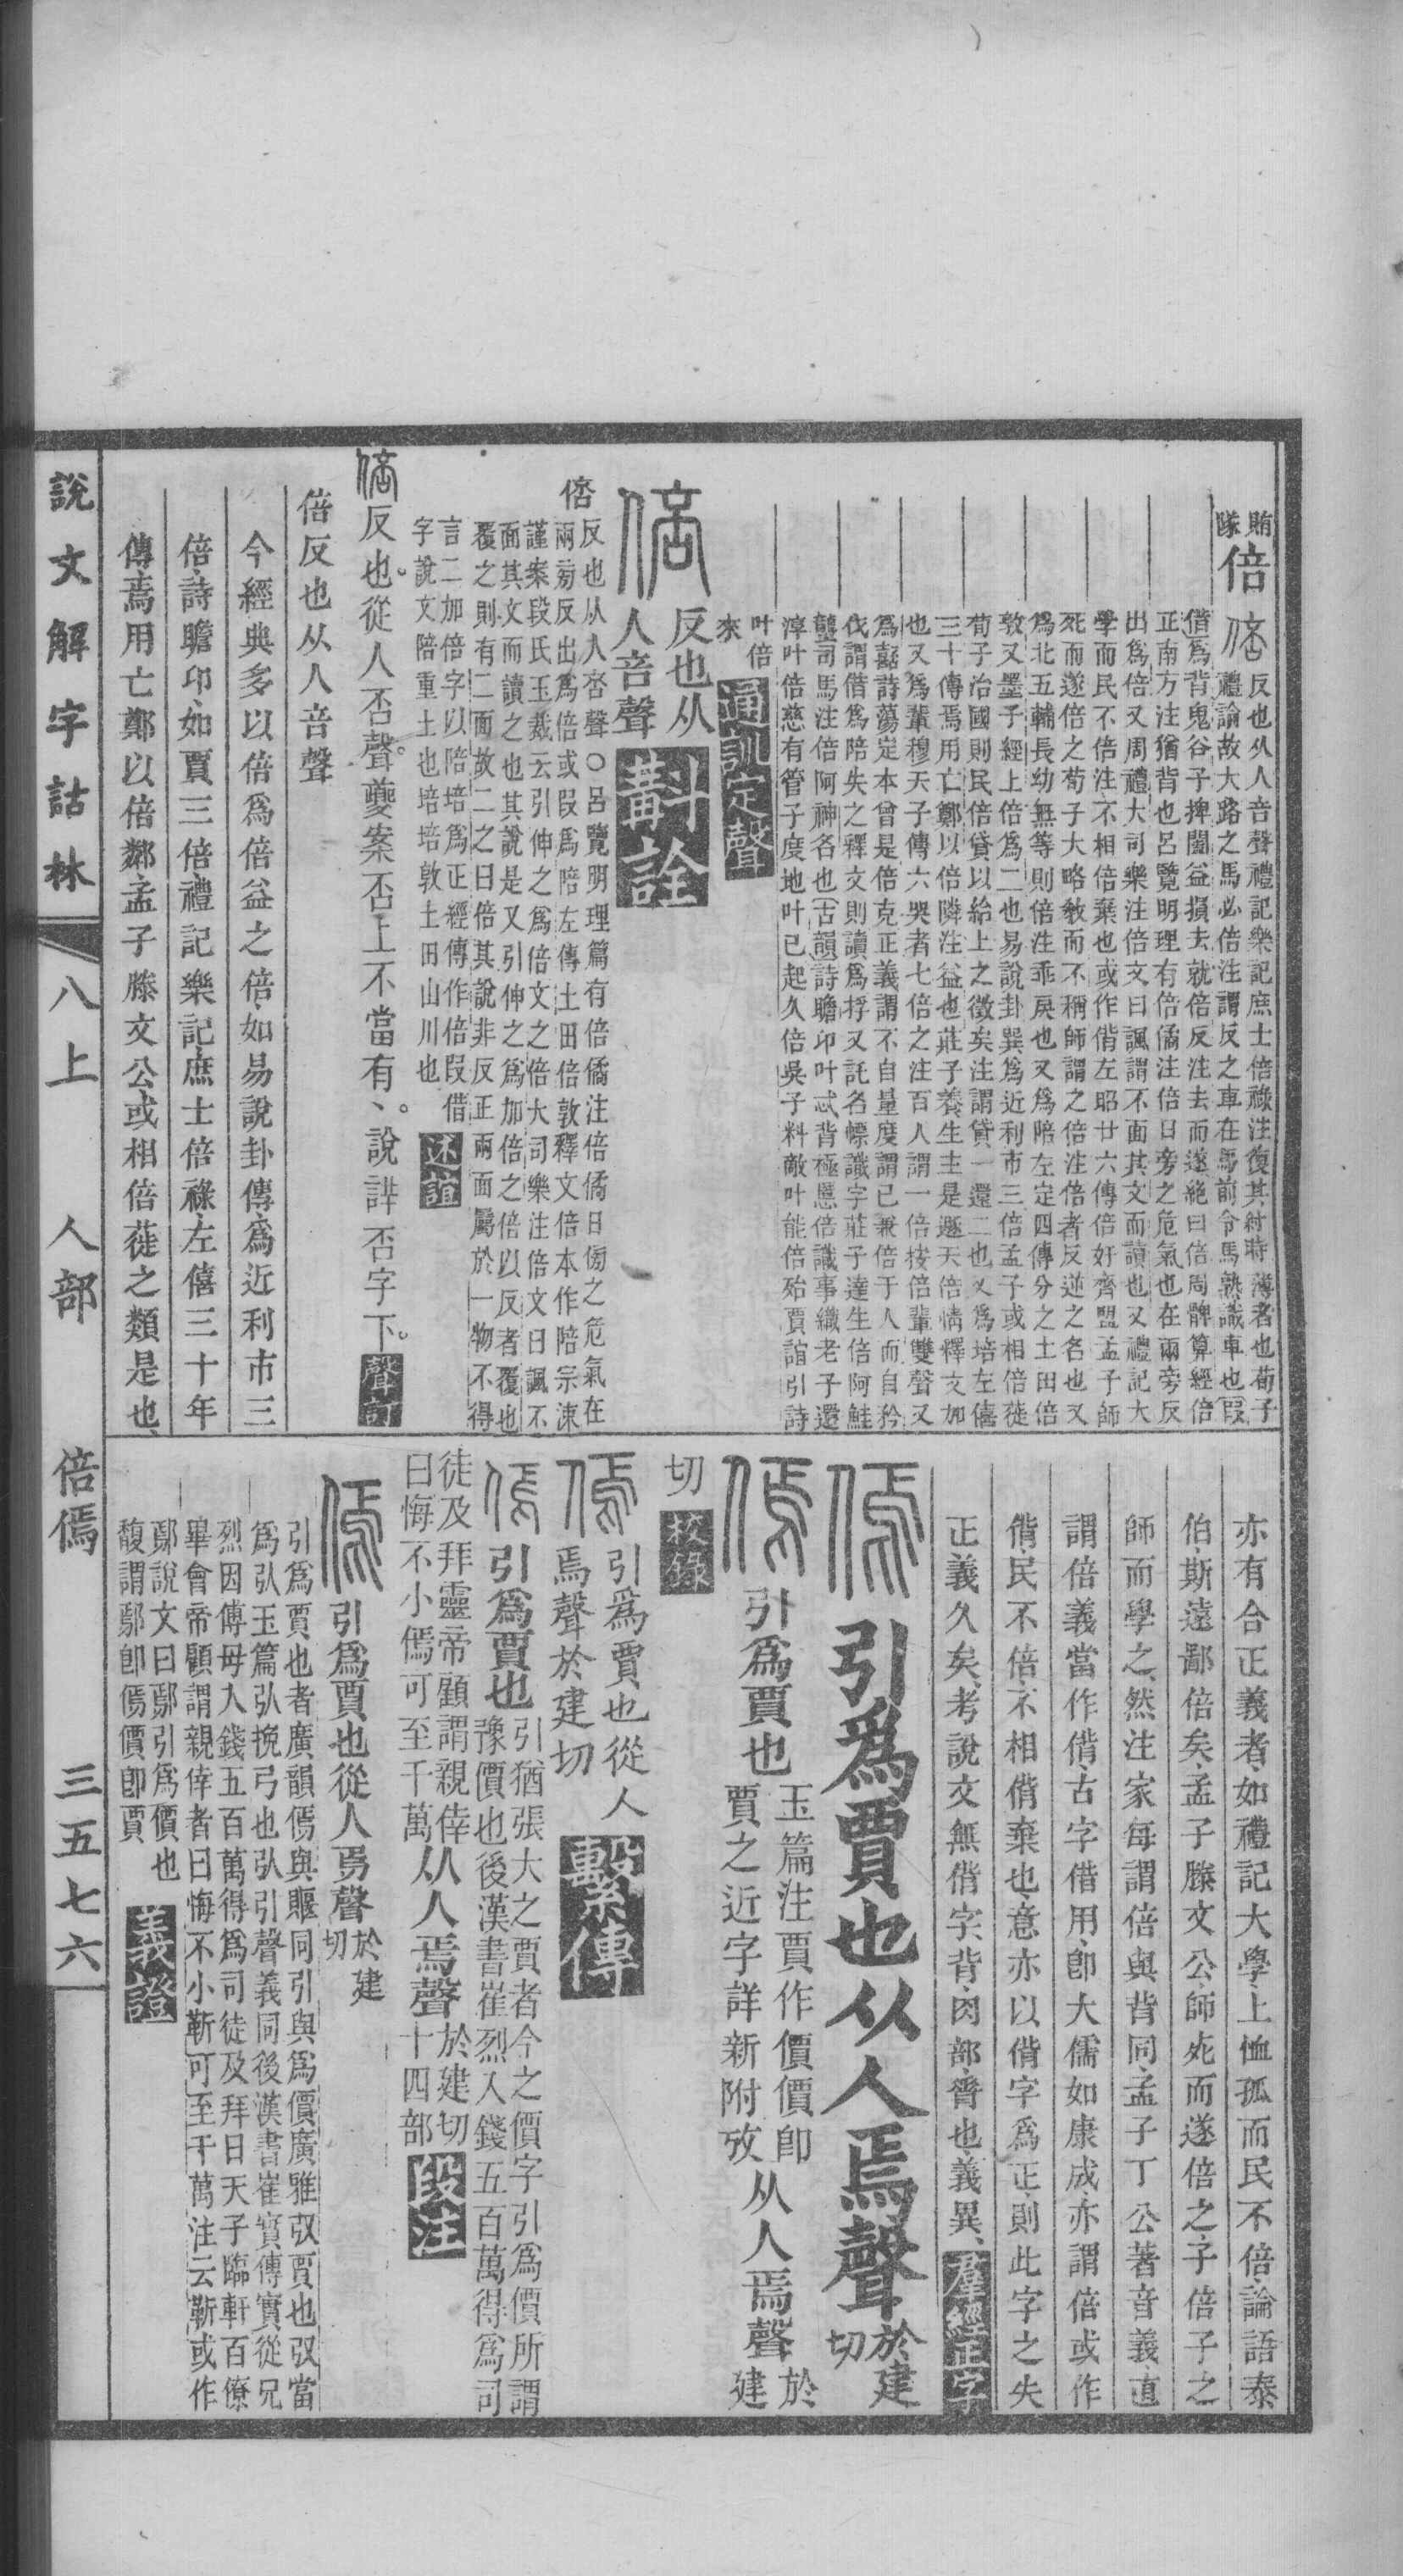 賄
隊
倍
反也从人咅聲禮記樂記庶士倍祿注復其紂時薄者也荀子
禮論故大路之馬必倍注謂反之車在馬前令馬熟識車也叚
借爲背鬼谷子捭闔益損去就倍反注去而遂絶曰倍周髀算經倍
正南方注猶背也呂覽明理有倍僪注倍日旁之危氣也在兩旁反
出爲倍又周禮大司樂注倍文曰諷謂不面其文而讀也又禮記大
學而民不倍注不相倍棄也或作偝左昭廿六傳倍奸齊盟孟子師
死而遂倍之荀子大略敎而不稱師謂之倍注倍者反逆之名也又
爲北五輔長幼無等則倍注乖戾也又爲陪左定四傳分之土田倍
敦又墨子經上倍爲二也易說卦巽爲近利市三倍孟子或相倍蓰
荀子治國則民倍貸以給上之徵矣注謂貸一還二也又爲培左僖
三十傳焉用亡鄭以倍隣注益也莊子養生主是遯天倍情釋文加
也又爲輩穆天子傳六哭者七倍之注百人謂一倍按倍輩雙聲又
爲嚭詩蕩定本曾是倍克正義謂不自量度謂已兼倍于人而自矜
伐謂借爲陪失之釋文則讀爲捊又託名幖識字莊子達生倍阿鮭
蠪司馬注倍阿神名也古韻詩瞻卬叶忒背極慝倍識事織老子還
淳叶倍慈有管子度地叶已起久倍吳子料敵叶能倍殆賈誼引詩
叶倍
來
通訓定聲
反也从
人咅聲
斠詮
倍
反也从人咅聲〇呂覽明理篇有倍僪注倍僪日傍之危氣在
兩旁反出爲倍或叚爲陪左傳土田倍敦釋文倍本作陪宗涑
謹案段氏玉裁云引伸之爲倍文之倍大司樂注倍文曰諷不
面其文而讀之也其說是又引伸之爲加倍之倍以反者覆也
覆之則有二面故二之曰倍其說非反正兩面屬於一物不得
言二加倍字以陪培爲正經傳作倍叚借
字說文陪重土也培培敦土田山川也
述誼
反也。從人否聲。夔案否上不當有丶。說詳否字下。
聲訂
倍反也从人咅聲
今經典多以倍爲倍益之倍、如易說卦傳、爲近利市三
倍、詩瞻卬、如賈三倍、禮記樂記、庶士倍祿、左僖三十年
傳、焉用亡鄭以倍鄰、孟子滕文公、或相倍蓰之類是也、
亦有合正義者、如禮記大學、上恤孤而民不倍、論語泰
伯、斯遠鄙倍矣、孟子滕文公、師死而遂倍之、子倍子之
師而學之、然注家每謂倍與背同、孟子丁公著音義、直
謂倍義當作偝、古字借用、卽大儒如康成、亦謂倍或作
偝、民不倍、不相偝棄也、意亦以偝字爲正、則此字之失
正義久矣、考說文無偝字、背、肉部、脊也、義異、
羣經正字
引爲賈也从人焉聲
於建
切
引爲賈也
玉篇注賈作價價卽
賈之近字詳新附攷
从人焉聲
於
建
切
校錄
引爲賈也從人
焉聲於建切
繫傳
引爲賈也
引猶張大之賈者今之價字引爲價所謂
豫價也後漢書崔烈入錢五百萬得爲司
徒及拜靈帝顧謂親倖
曰悔不小傿可至千萬
从人焉聲
於建切
十四部
段注
引爲賈也從人焉聲
於建
切
引爲賈也者廣韻傿與躽同引與爲價廣雅㢭賈也㢭當
爲弞玉篇弞挽弓也弞引聲義同後漢書崔寔傳寔從兄
烈因傅母入錢五百萬得爲司徒及拜日天子臨軒百僚
畢會帝顧謂親倖者曰悔不小靳可至千萬注云靳或作
鄢說文曰鄢引爲價也
馥謂鄢卽傿價卽賈
義證
說文解字詁林
八上
人部
倍傿
三五七六